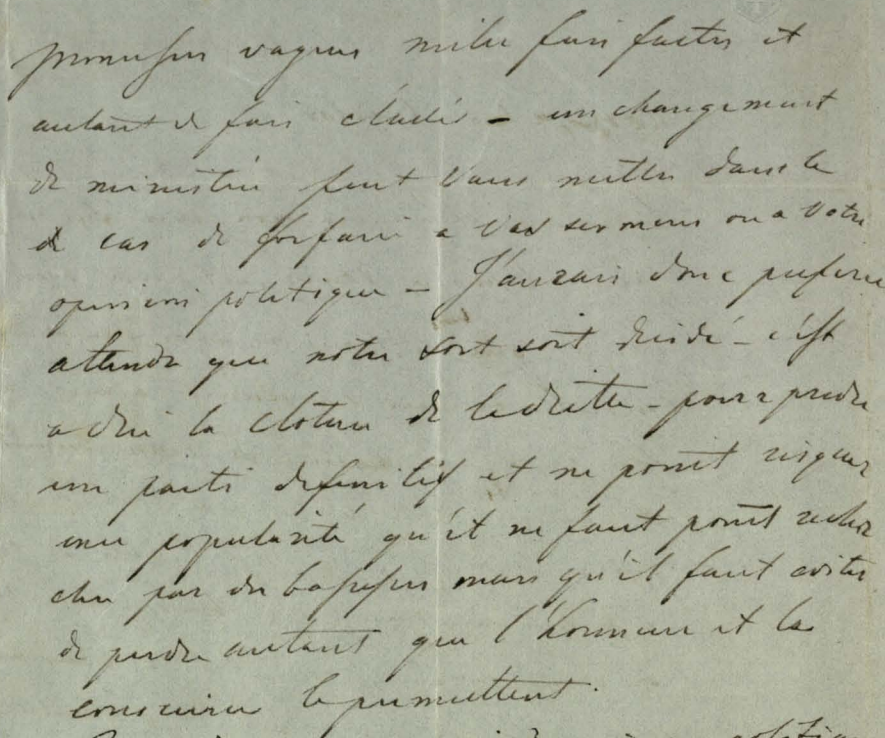 promesses vagues mille fois faites et
autant de fois éludés - un changement
de ministère peut vous mettre dans le
cas de forfaire a vos sermens ou a votre
opinion politique - J'aurais donc preferé
attendre que notre sort soit decidé - c'est
a dire la cloture de la diette - pour prendre
un parti definitif et ne point risquer
une popularité qu'il ne faut point recher
cher par des bassesses mais qu'il faut eviter
de perdre autant que l'honneur et la
conscience le permettent.